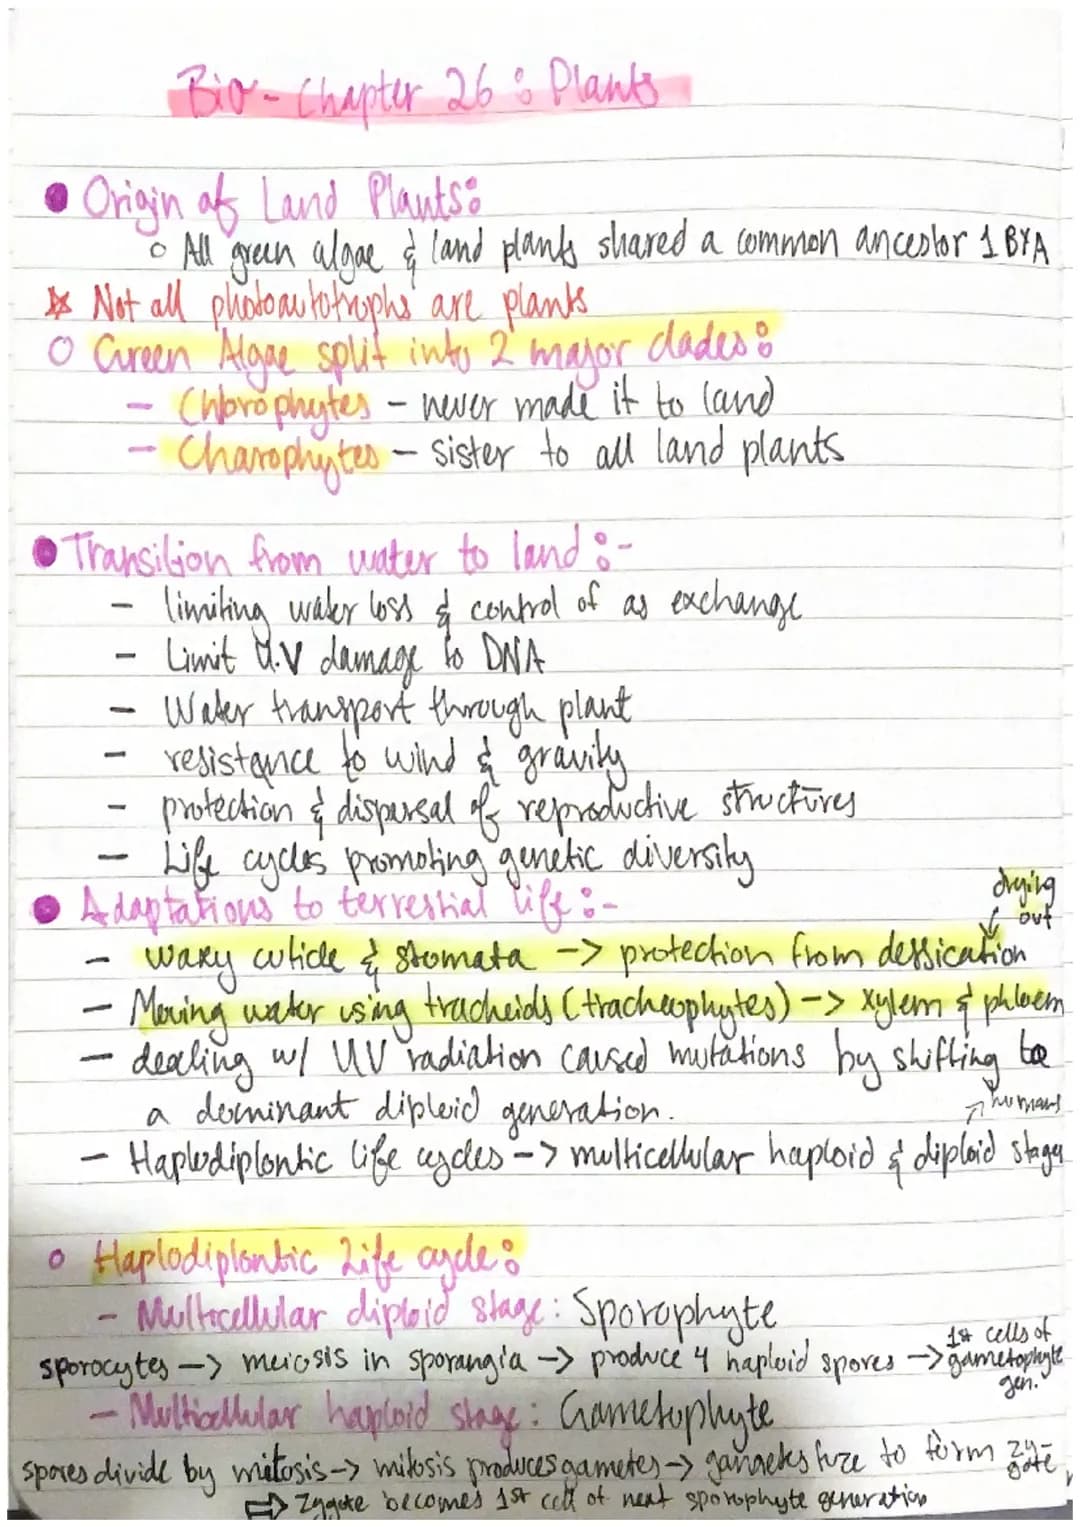 Bio - Chapter 26 : Plants
Origin of Land Plants:
All green algae & land plants shared a common ancestor 1 BYA
Not all photoautotrophs are plants
Green Algae split into 2 major clades:
- Chlorophytes - never made it to land
- Charophytes - sister to all land plants
Transition from water to land :-
- limiting water loss & control of as exchange
- Limit U.V damage to DNA
- Water transport through plant
- resistance to wind & gravity
- protection & dispersal of reproductive structures
- Life cycles promoting genetic diversity
Adaptations to terrestrial life :-
drying out
- waxy cuticle & stomata -> protection from dessication
- Moving water using tracheids (tracheophytes) -> xylem & phloem
- dealing w/ UV radiation caused mutations by shifting to
a dominant diploid generation.
humans
- Haplodiplontic life cycles -> multicellular haploid & diploid stages
Haplodiplontic Life cycle:
- Multicellular diploid stage: Sporophyte
sporocytes -> meiosis in sporangia -> produce 4 haploid spores -> 1st cells of gametophyte gen.
- Multicellular haploid stage: Gametophyte
spores divide by mitosis -> mitosis produces gametes -> gametes fuze to form zygote
=> Zygote becomes 1st cell of next sporophyte generation